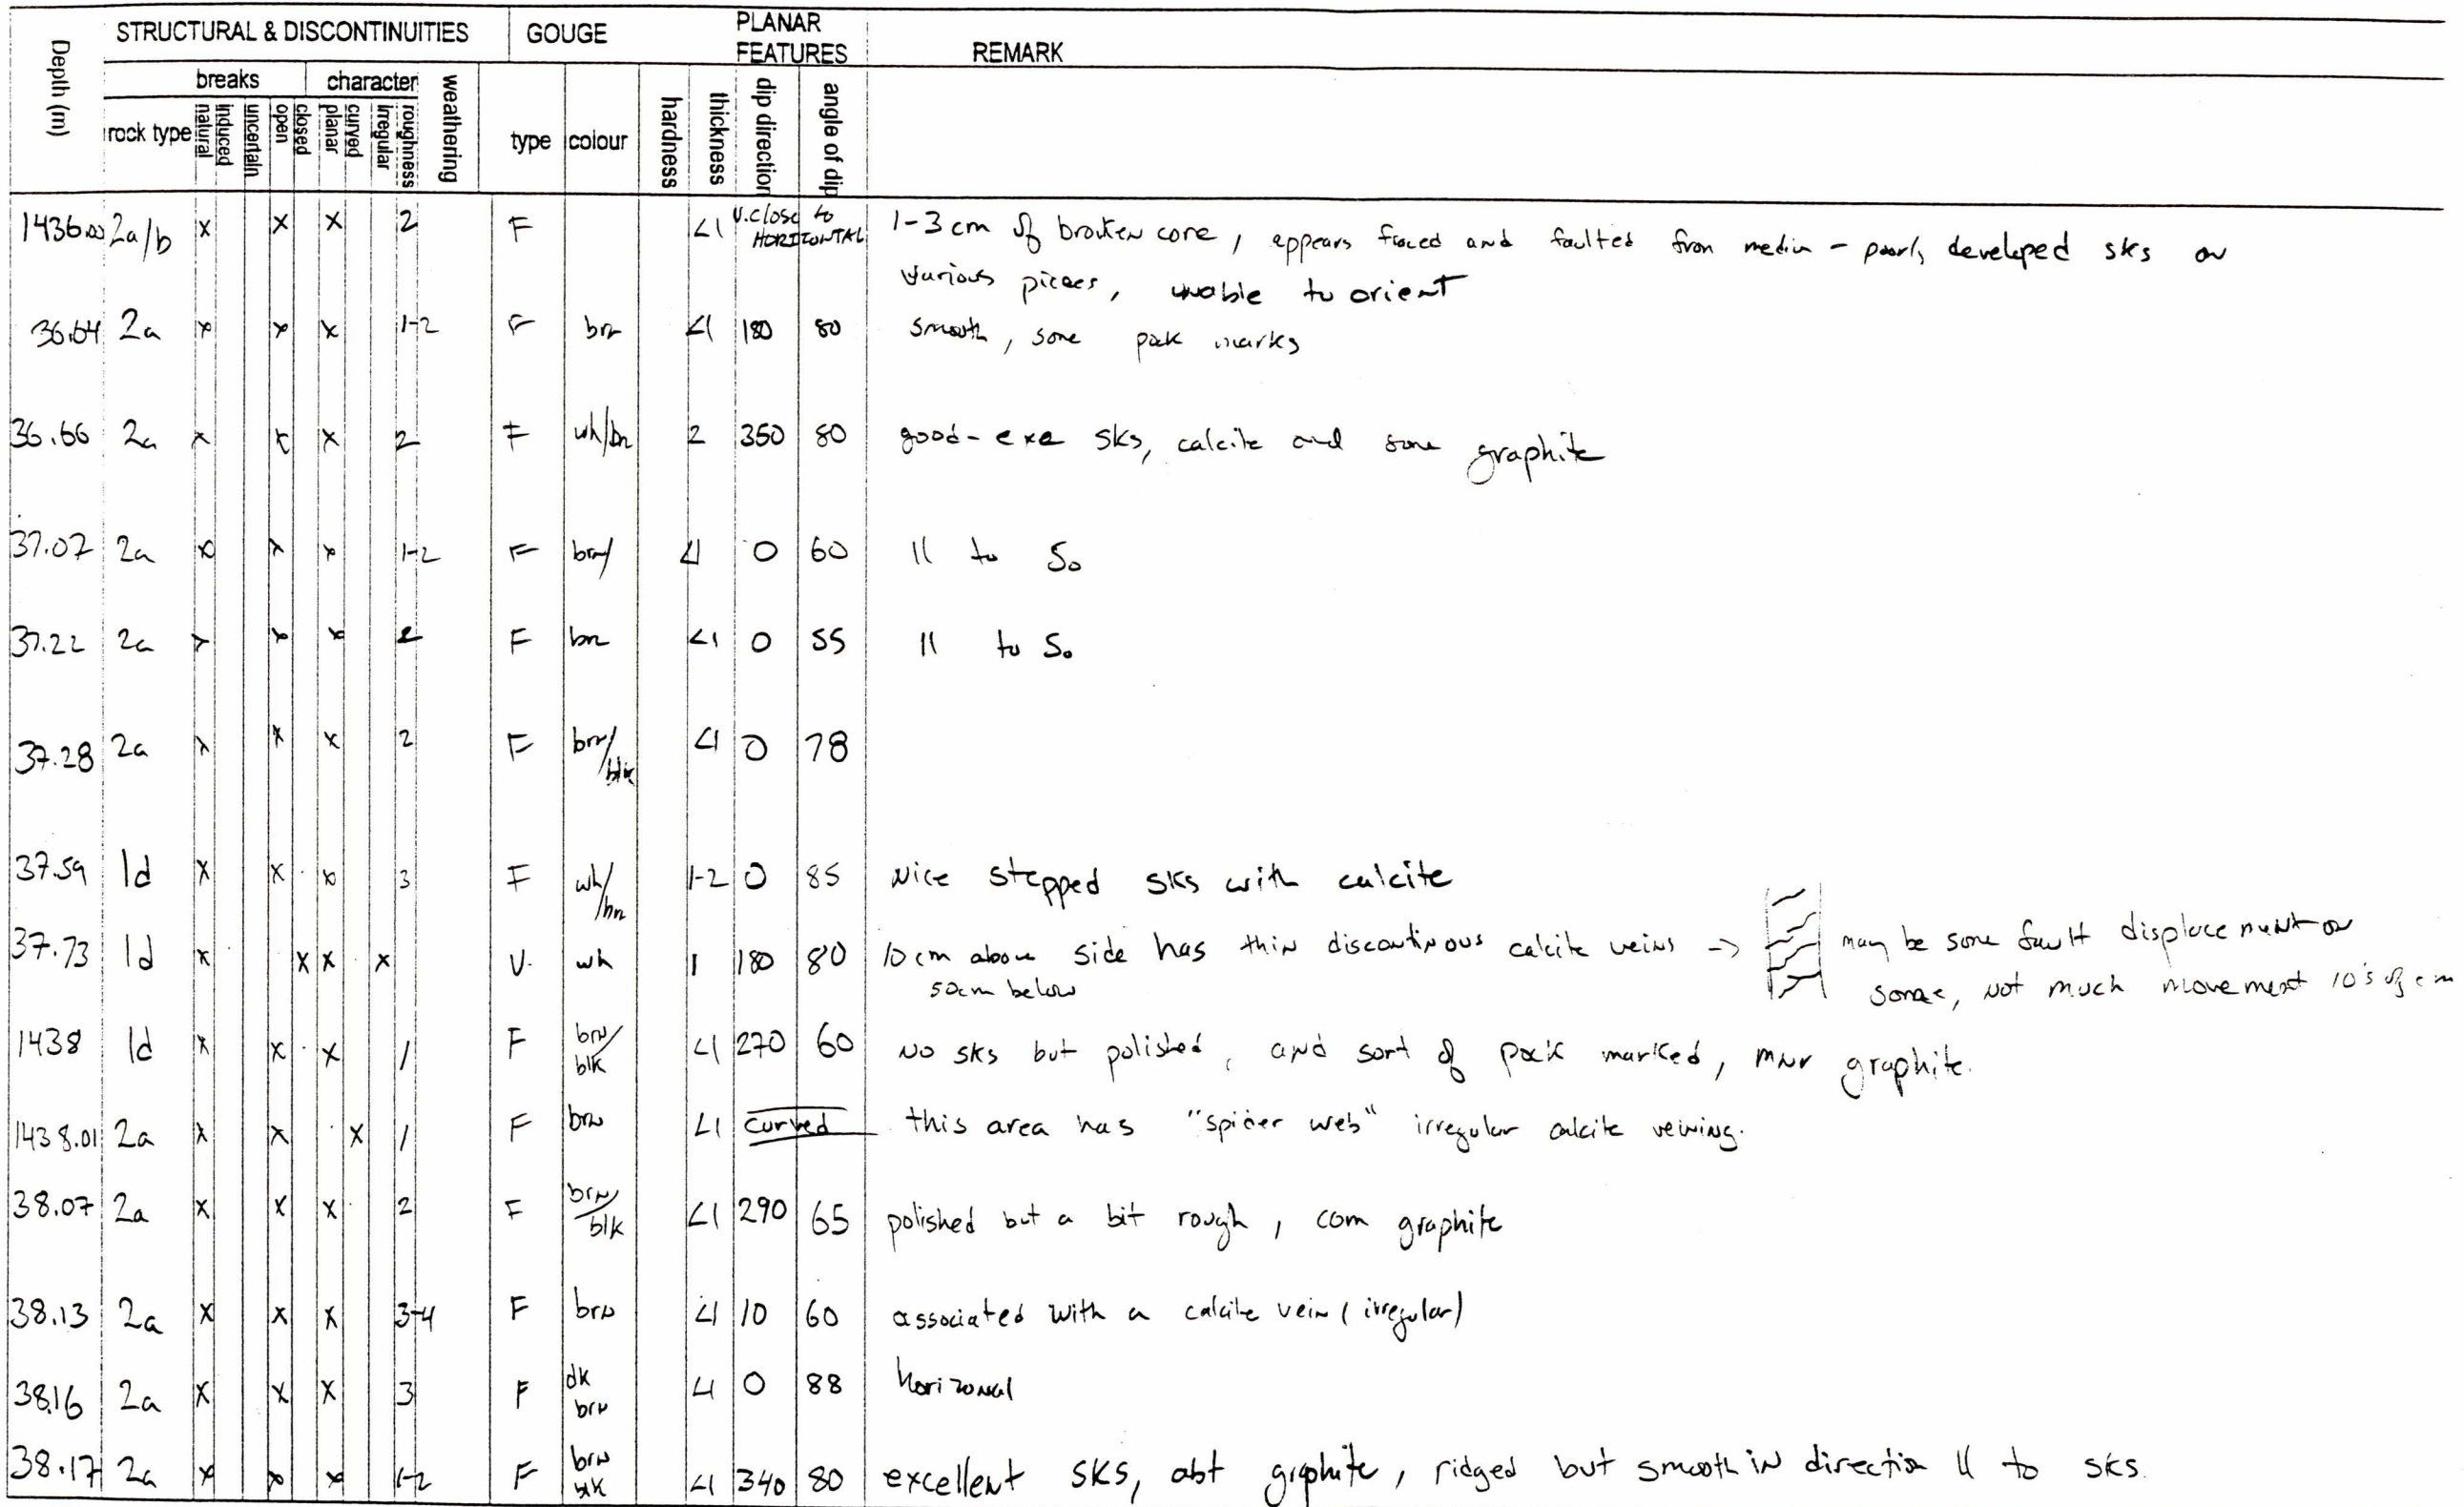 STRUCTURAL & DISCONTINUITIES GOUGE PLANAR FEATURES REMARK
Depth (m) breaks character weathering hardness thickness dip direction angle of dip
rock type natural induced uncertain open closed planar curved irregular roughness type colour
1436.00 2a/b x x x 2 F <1 V.close to HORIZONTAL 1-3 cm of broken core, appears and faulted from - poorly developed sks on
various pices, unable to orient
36.64 2a x x x 1-2 F brn <1 180 80 smooth, some pok marks
36.66 2a x x x 2 F wh/bn 2 350 80 good-exe sks, calcite and some graphite
37.07 2a x x x 1-2 F brn/ <1 0 60 || to So
37.22 2a x x x 2 F brn <1 0 55 || to So
37.28 2a x x x 2 F brn/blk <1 0 78
37.59 1d x x x 3 F wh/brn 1-2 0 85 Nice stepped sks with calcite
37.73 1d x x x x V. wh 1 180 80 10 cm above side has thin discontinous calcite veins -> may be some fault displacement on
50cm below some, not much movement 10's of cm
1438 1d x x x 1 F brn/blk <1 270 60 No sks but polished, and sort of pock marked, mnr graphite.
1438.01 2a x x x 1 F brn <1 curved this area has "spider web" irregular calcite veining.
38.07 2a x x x 2 F brn/blk <1 290 65 polished but a bit rough, com graphite
38.13 2a x x x 3-4 F brn <1 10 60 associated with a calcite vein (irregular)
38.16 2a x x x 3 F dk brn <1 0 88 horizonal
38.17 2a x x x 1-2 F brn blk <1 340 80 excellent sks, abt graphite, ridged but smooth in direction || to sks.